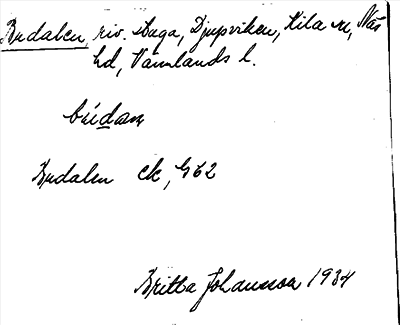 Budalen, riv. stuga, Djupviken, Kila sn, Näs
hd, Värmlands l.
Budalen ek, G62
Britta Johansson 1934